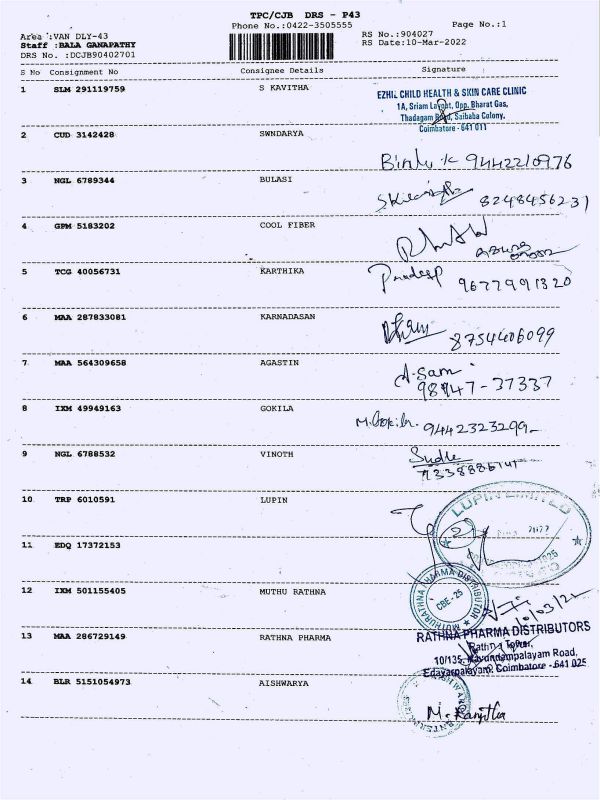 TPC/CJB DRS - P43
Phone No.:0422-3505555
Page No.:1
Area :VAN DLY-43
Staff :BALA GANAPATHY
DRS No. :DCJB90402701
RS No.:904027
RS Date:10-Mar-2022
S No Consignment No Consignee Details Signature
1 SLM 291119759 S KAVITHA
EZHIL CHILD HEALTH & SKIN CARE CLINIC
1A, Sriam Layout, Opp. Bharat Gas,
Thadagam Road, Saibaba Colony,
Coimbatore - 641 011
2 CUD 3142428 SWNDARYA
Bindu K 9442210976
3 NGL 6789344 BULASI
8248456231
4 GPM 5183202 COOL FIBER
5 TCG 40056731 KARTHIKA
Pradeep 9677991320
6 MAA 287833081 KARNADASAN
8754406099
7 MAA 564309658 AGASTIN
A. Sam
98947-37337
8 IXM 49949163 GOKILA
M. Gokila. 9442323299
9 NGL 6788532 VINOTH
10 TRP 6010591 LUPIN
LUPIN LIMITED
2022
11 EDQ 17372153
12 IXM 501155405 MUTHU RATHNA
MUTHURATHNA PHARMA DISTRIBUTOR
CBE - 25
10/03/22
13 MAA 286729149 RATHNA PHARMA
RATHNA PHARMA DISTRIBUTORS
Rathna Tower,
10/135, Kavundampalayam Road,
Edayarpalayam, Coimbatore - 641 025
14 BLR 5151054973 AISHWARYA
M. Ranjitha